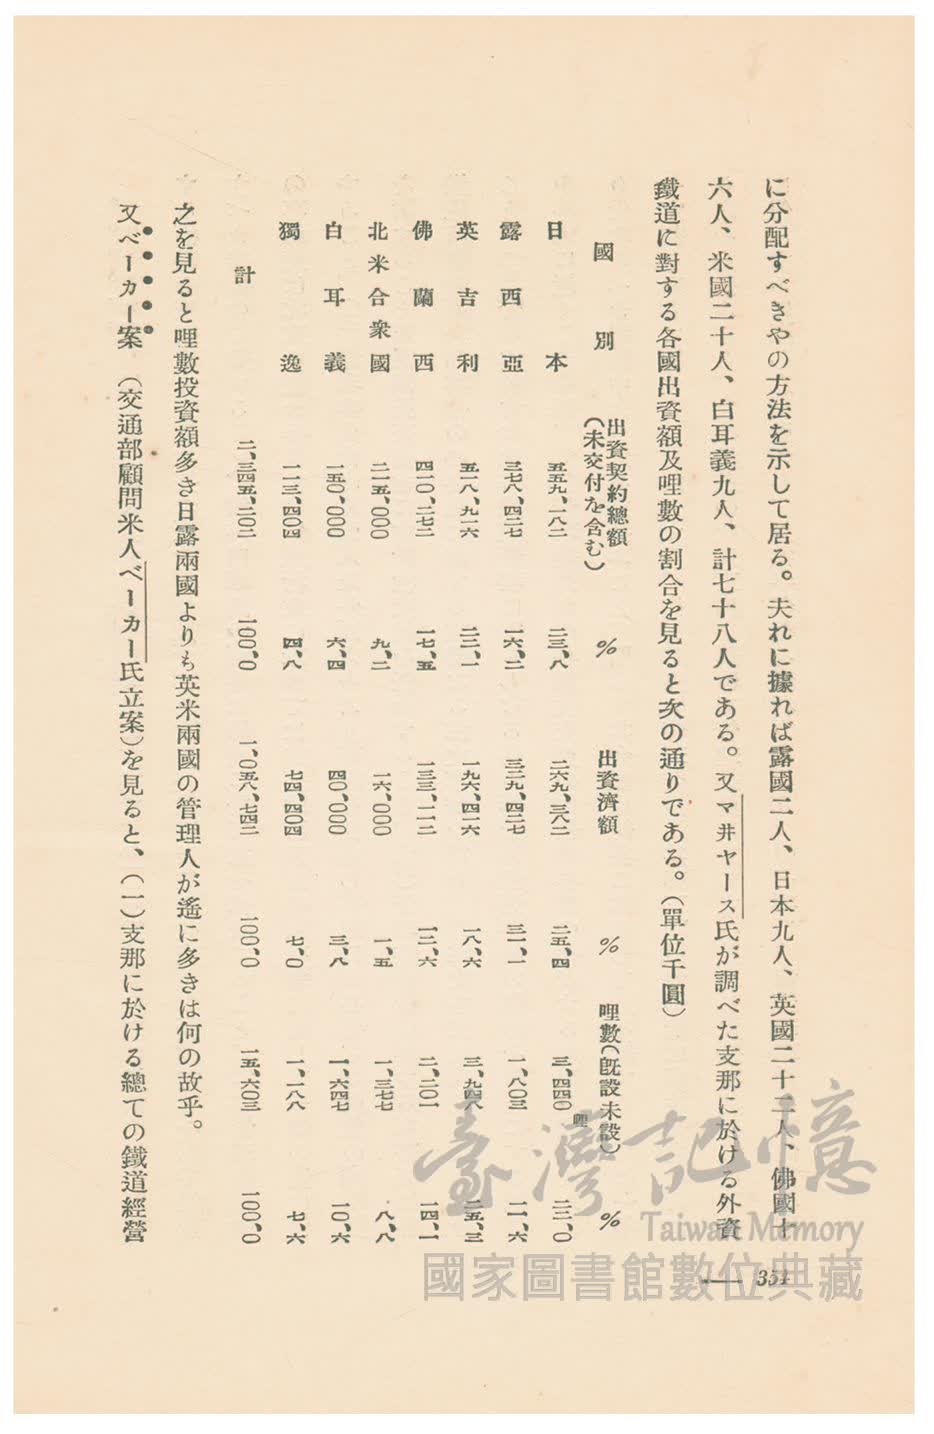 に分配すべきやの方法を示して居る。夫れに據れば露國二人、日本九人、英國二十二人、佛國十
六人、米國二十人、白耳義九人、計七十八人である。又マ井ヤース氏が調べた支那に於ける外資
鐵道に對する各國出資額及哩數の割合を見ると次の通りである。(單位千圓)
國別 出資契約總額(未交付を含む) % 出資濟額 % 哩數(既設未設) %
日本 五五九、一八二 二三、八 二六九、三八二 二五、四 三、四四〇哩 二二、〇
露西亞 三七八、四二七 一六、二 三二九、四二七 三一、一 一、八〇三 一一、六
英吉利 五一八、九一六 二二、一 一九六、四一六 一八、六 三、九四八 二五、三
佛蘭西 四一〇、二七二 一七、五 一三三、一一二 一二、六 二、二〇一 一四、一
北米合衆國 二一五、〇〇〇 九、二 一六、〇〇〇 一、五 一、三七七 八、八
白耳義 一五〇、〇〇〇 六、四 四〇、〇〇〇 三、八 一、六四七 一〇、六
獨逸 一一三、四〇四 四、八 七四、四〇四 七、〇 一、一八八 七、六
計 二、三四五、二〇二 一〇〇、〇 一、〇五八、七四二 一〇〇、〇 一五、六〇三 一〇〇、〇
之を見ると哩數投資額多き日露兩國よりも英米兩國の管理人が遙に多きは何の故乎。
又ベーカー案 (交通部顧問米人ベーカー氏立案)を見ると、(一)支那に於ける總ての鐵道經營
354
臺灣記憶
Taiwan Memory
國家圖書館數位典藏